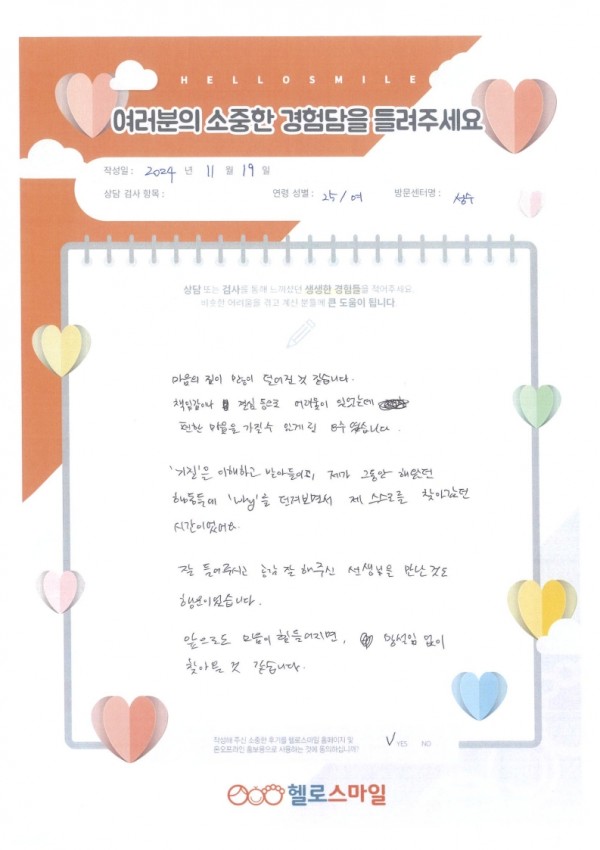 HELLOSMILE
여러분의 소중한 경험담을 들려주세요
작성일 : 2024 년 11 월 19 일
상담 검사 항목 : 연령 성별 : 25/여 방문센터명 : 성수
상담 또는 검사를 통해 느끼셨던 생생한 경험들을 적어주세요.
비슷한 어려움을 겪고 계신 분들께 큰 도움이 됩니다.
마음의 짐이 많이 덜어진 것 같습니다.
책임감이나 결심 등으로 어려움이 있었는데
편한 마음을 가질 수 있게 된 8주였습니다.
'기질'을 이해하고 받아들이고, 제가 그동안 해왔던
행동들에 '왜'를 던져보면서 제 스스로를 찾아갔던
시간이었어요.
잘 들어주시고 공감 잘 해주신 선생님을 만난 것도
행운이었습니다.
앞으로도 마음이 힘들어지면, 망설임 없이
찾아올 것 같습니다.
작성해 주신 소중한 후기를 헬로스마일 홈페이지 및
온오프라인 홍보용으로 사용하는 것에 동의하십니까?
V YES NO
헬로스마일